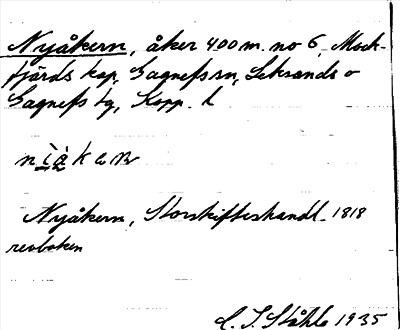 Nyåkern, åker 400 m. no 6, Mock-
fjärds kap, Gagnefs sn, Leksands o
Gagnefs tg, Kopp. l
Nyåkern, Storskifteshandl. 1818
revboken
C. I. Ståhle 1935